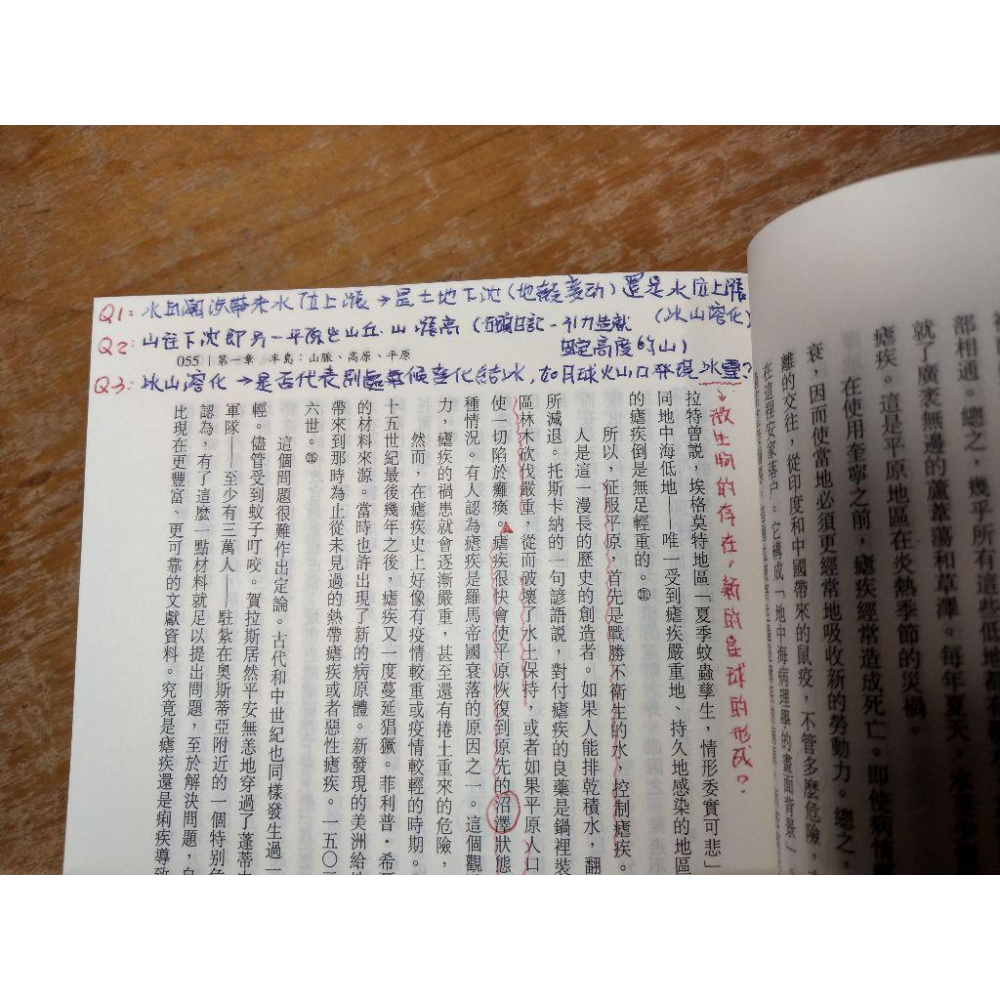 Q1: 水面潮汐帶來水位上漲→是土地下沈(地殼變動)還是水位上漲
(冰山溶化)
Q2: 山往下沈即另一平原出山丘.山.漲高(在
日記-引力造就
固定高度的山)
055 | 第一章 半島:山脈、高原、平原
Q3: 冰山溶化→是否代表別處氣候變化結冰,如月球火山口發現冰雪?
→微生物的存在,新的星球的形成?
拉特曾說,埃格莫特地區「夏季蚊蟲孳生,情形委實可悲」
同地中海低地——唯一受到瘧疾嚴重地、持久地感染的地區
的瘧疾倒是無足輕重的。
所以,征服平原,首先是戰勝不衛生的水,控制瘧疾。
人是這一漫長的歷史的創造者。如果人能排乾積水,翻
所減退。托斯卡納的一句諺語說,對付瘧疾的良藥是鍋裡裝
區林木砍伐嚴重,從而破壞了水土保持,或者如果平原人口
使一切陷於癱瘓。瘧疾很快會使平原恢復到原先的沼澤狀態
種情況。有人認為瘧疾是羅馬帝國衰落的原因之一。這個觀
力,瘧疾的禍患就會逐漸嚴重,甚至還有捲土重來的危險,
然而,在瘧疾史上好像有疫情較重或疫情較輕的時期。
十五世紀最後幾年之後,瘧疾又一度蔓延猖獗。菲利普·希
的材料來源。當時也許出現了新的病原體。新發現的美洲給
帶來到那時為止從未見過的熱帶瘧疾或者惡性瘧疾。一五〇三
六世。
這個問題很難作出定論。古代和中世紀也同樣發生過
輕。儘管受到蚊子叮咬。賀拉斯居然平安無恙地穿過了蓬蒂
軍隊——至少有三萬人——駐紮在奧斯蒂亞附近的一個特別
認為,有了這麼一點材料就足以提出問題,至於解決問題,
比現在更豐富、更可靠的文獻資料。究竟是瘧疾還是痢疾導致
部相通。總之,幾乎所有這些低地都
就了廣袤無邊的蘆葦蕩和草澤。每年夏天,水
瘧疾。這是平原地區在炎熱季節的災禍。
在使用奎寧之前,瘧疾經常造成死亡。即使病情
衰,因而使當地必須更經常地吸收新的勞動力。總之,
離的交往,從印度和中國帶來的鼠疫,不管多麼危險,
在這裡安家落户。它構成「地中海病理學的畫面背景」。